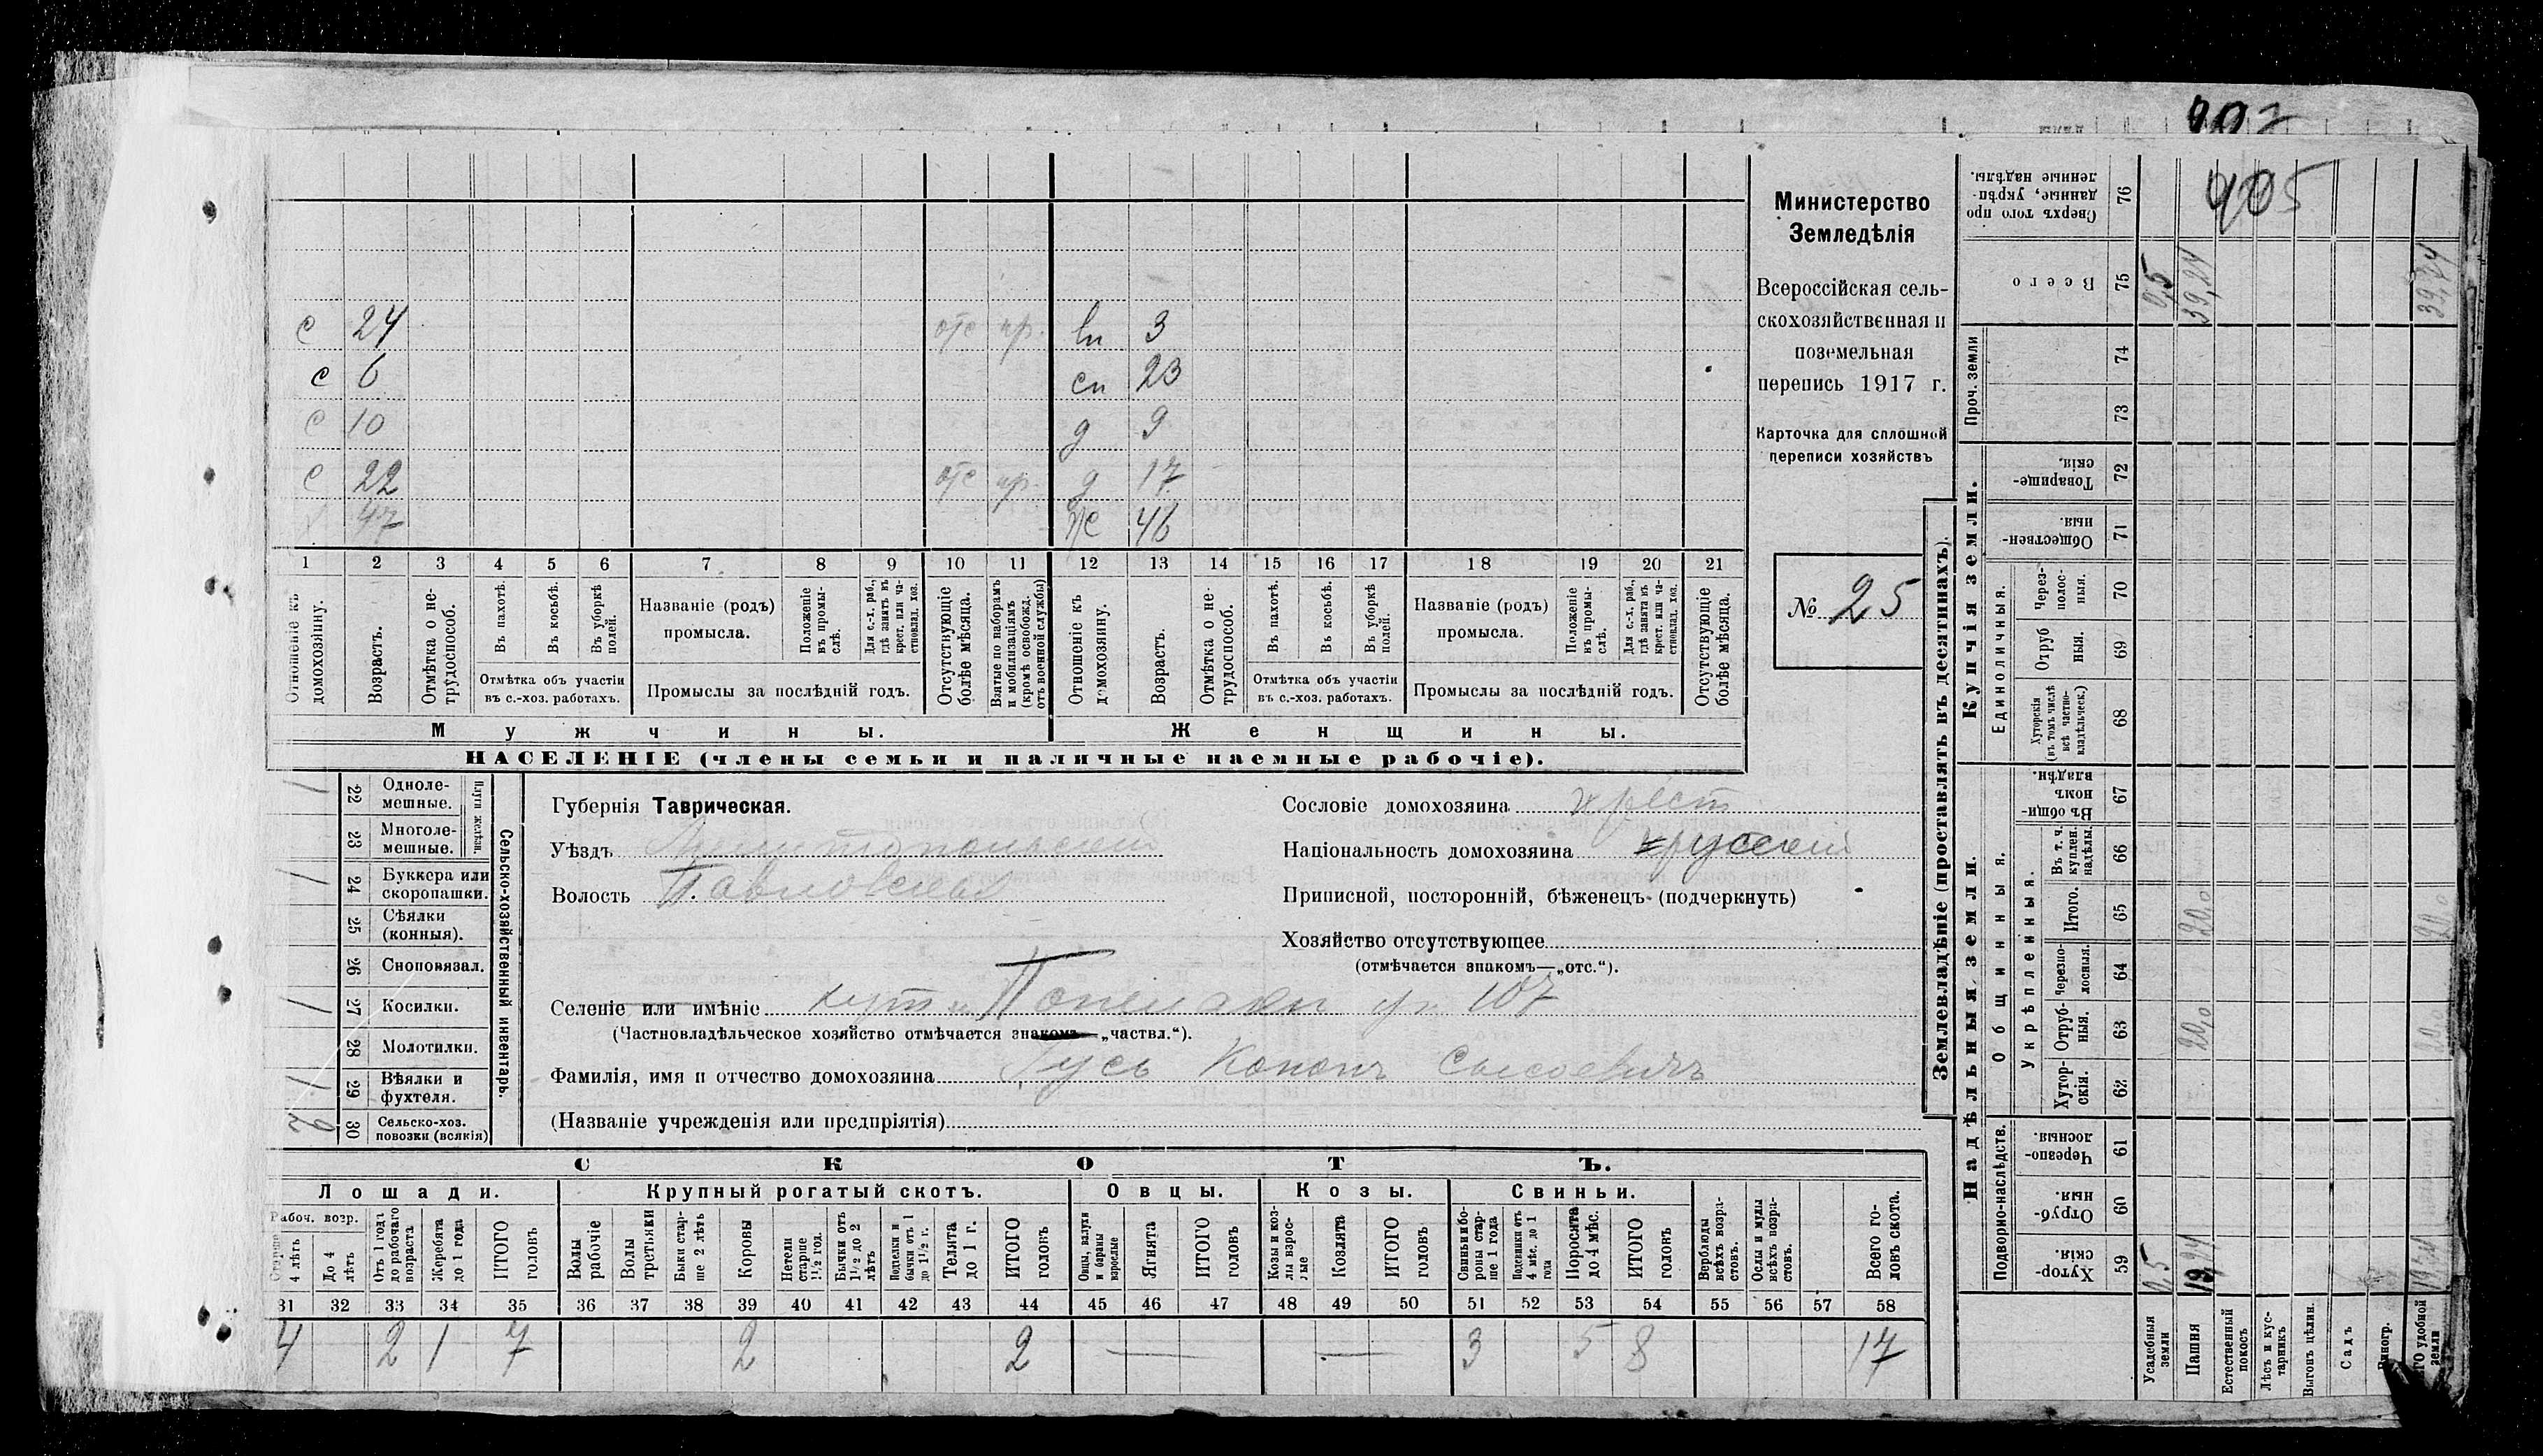 902
405
Министерство
Земледѣлія
Всероссійская сель-
скохозяйственная и
поземельная
перепись 1917 г.
Карточка для сплошной
переписи хозяйствъ
№ 25
с 24 отс пр. вн 3
с 6 сн 23
с 10 д 9
с 22 отс пр. д 17
х 47 ж 46
1 2 3 4 5 6 7 8 9 10 11 12 13 14 15 16 17 18 19 20 21
Отношеніе къ домохозяину.
Возрастъ.
Отмѣтка о не-трудоспособ.
Въ пахотѣ.
Въ косьбѣ.
Въ уборкѣ полей.
Отмѣтка объ участіи
въ с.-хоз. работахъ.
Названіе (родъ)
промысла.
Положеніе въ промы-слѣ.
Для с.-х. раб., гдѣ занятъ въ крест. или ча-стновлад. хоз.
Промыслы за послѣдній годъ.
Отсутствующіе болѣе мѣсяца.
Взятые по наборамъ и мобилизаціямъ (кромѣ освобожд. отъ военной службы)
Отношеніе къ домохозяину.
Возрастъ.
Отмѣтка о не-трудоспособ.
Въ пахотѣ.
Въ косьбѣ.
Въ уборкѣ полей.
Отмѣтка объ участіи
въ с.-хоз. работахъ.
Названіе (родъ)
промысла.
Положеніе въ промы-слѣ.
Для с.-х. раб., гдѣ занята въ крест. или ча-стновлад. хоз.
Промыслы за послѣдній годъ.
Отсутствующіе болѣе мѣсяца.
Мужчины. Женщины.
НАСЕЛЕНІЕ (члены семьи и наличные наемные рабочіе).
Сельско-хозяйственный инвентарь.
Плуги желѣзн.
1 22 Одноле-мешные.
23 Многоле-мешные.
1 24 Буккера или скоропашки.
25 Сѣялки (конныя).
26 Сноповязал.
1 27 Косилки.
28 Молотилки.
1 29 Вѣялки и фухтеля.
30 Сельско-хоз. повозки (всякія)
Губернія Таврическая.
Уѣздъ Мелитопольскій
Волость Павловская
Сословіе домохозяина крест
Національность домохозяина русскій
Приписной, посторонній, бѣженецъ (подчеркнуть)
Хозяйство отсутствующее
(отмѣчается знакомъ—„отс.“).
Селеніе или имѣніе
107
(Частновладѣльческое хозяйство отмѣчается знакомъ—„частвл.“).
Фамилія, имя и отчество домохозяина Гусь Кононъ Сысоевичъ
(Названіе учрежденія или предпріятія)
СКОТЪ.
Лошади. Крупный рогатый скотъ. Овцы. Козы. Свиньи.
Рабоч. возр.
Старше 4 лѣтъ
До 4 лѣтъ
Отъ 1 года до рабочаго возраста
Жеребята до 1 года
ИТОГО головъ
Волы рабочіе
Волы третьяки
Быки стар-ше 2 лѣтъ
Коровы
Нетели старше 1½ год.
Бычки отъ 1½ до 2 лѣтъ
Подтелки и бычки отъ 1 до 1½ г.
Телята до 1 г.
ИТОГО головъ
Овцы, валухи и бараны взрослые
Ягнята
ИТОГО головъ
Козы и коз-лы взрос-лые
Козлята
ИТОГО головъ
Свиньи и бо-ровы стар-ше 1 года
Подсвинки отъ 4 мѣс. до 1 года
Поросята до 4 мѣс.
ИТОГО головъ
Верблюды всѣхъ возра-стовъ.
Ослы и мулы всѣхъ возра-стовъ.
Всего го-ловъ скота.
31 32 33 34 35 36 37 38 39 40 41 42 43 44 45 46 47 48 49 50 51 52 53 54 55 56 57 58
4 2 1 7 2 2 — — 3 5 8 17
Землевладѣніе (проставлять въ десятинахъ).
Надѣльныя земли. Купчія земли.
Проч. земли
Сверхъ того про данные, укрѣп-ленные надѣлы. 76
Всего 75 0,5 39,24 39,74
74
73
Товарище-скія. 72
Обществен-ныя. 71
Единоличныя.
Через-полос-ныя. 70
Отруб ныя. 69
Хуторскія (въ томъ числѣ всѣ частно-владѣльческ.) 68
Общинныя.
Въ общи-номъ владѣн. 67
Укрѣпленныя.
Въ т. ч. куплен. надѣлы. 66
Итого. 65 20,0 20,0
Черезпо-лосныя. 64
Отруб-ныя. 63 20,0 20,0
Хутор-скія. 62
Подворно-наслѣдств.
Черезпо-лосныя. 61
Отруб-ныя. 60
Хутор-скія. 59 0,5 19,24 19,74
Усадебныя земли
Пашня
Естественный покосъ
Лѣсъ и кус-тарникъ
Выгонъ цѣлин.
Садъ
Виногр.
ГО удобной земли